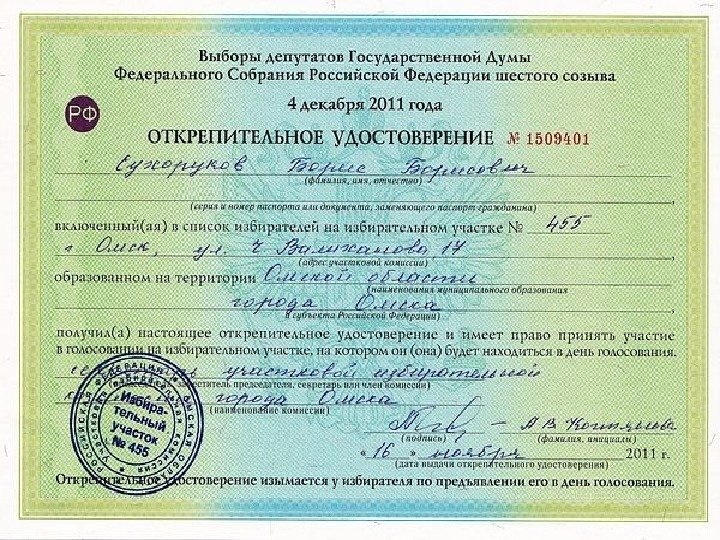 Выборы депутатов Государственной Думы
Федерального Собрания Российской Федерации шестого созыва
4 декабря 2011 года
РФ
ОТКРЕПИТЕЛЬНОЕ УДОСТОВЕРЕНИЕ № 1509401
Сухоруков Борис Борисович
(фамилия, имя, отчество)
(серия и номер паспорта или документа, заменяющего паспорт гражданина)
включенный(ая) в список избирателей на избирательном участке № 455
г. Омск, ул. Ч. Валиханова 17
(адрес участковой комиссии)
образованном на территории Омской области
(наименования муниципального образования
города Омска
субъекта Российской Федерации)
получил(а) настоящее открепительное удостоверение и имеет право принять участие
в голосовании на избирательном участке, на котором он (она) будет находиться в день голосования.
участковой избирательной
председателя, секретарь или член комиссии)
города Омска
(наименование комиссии)
Избира-
тельный
участок
№ 455
А В
(подпись) (фамилия, инициалы)
« 16 » ноября 2011 г.
(дата выдачи открепительного удостоверения)
Открепительное удостоверение изымается у избирателя по предъявлении его в день голосования.